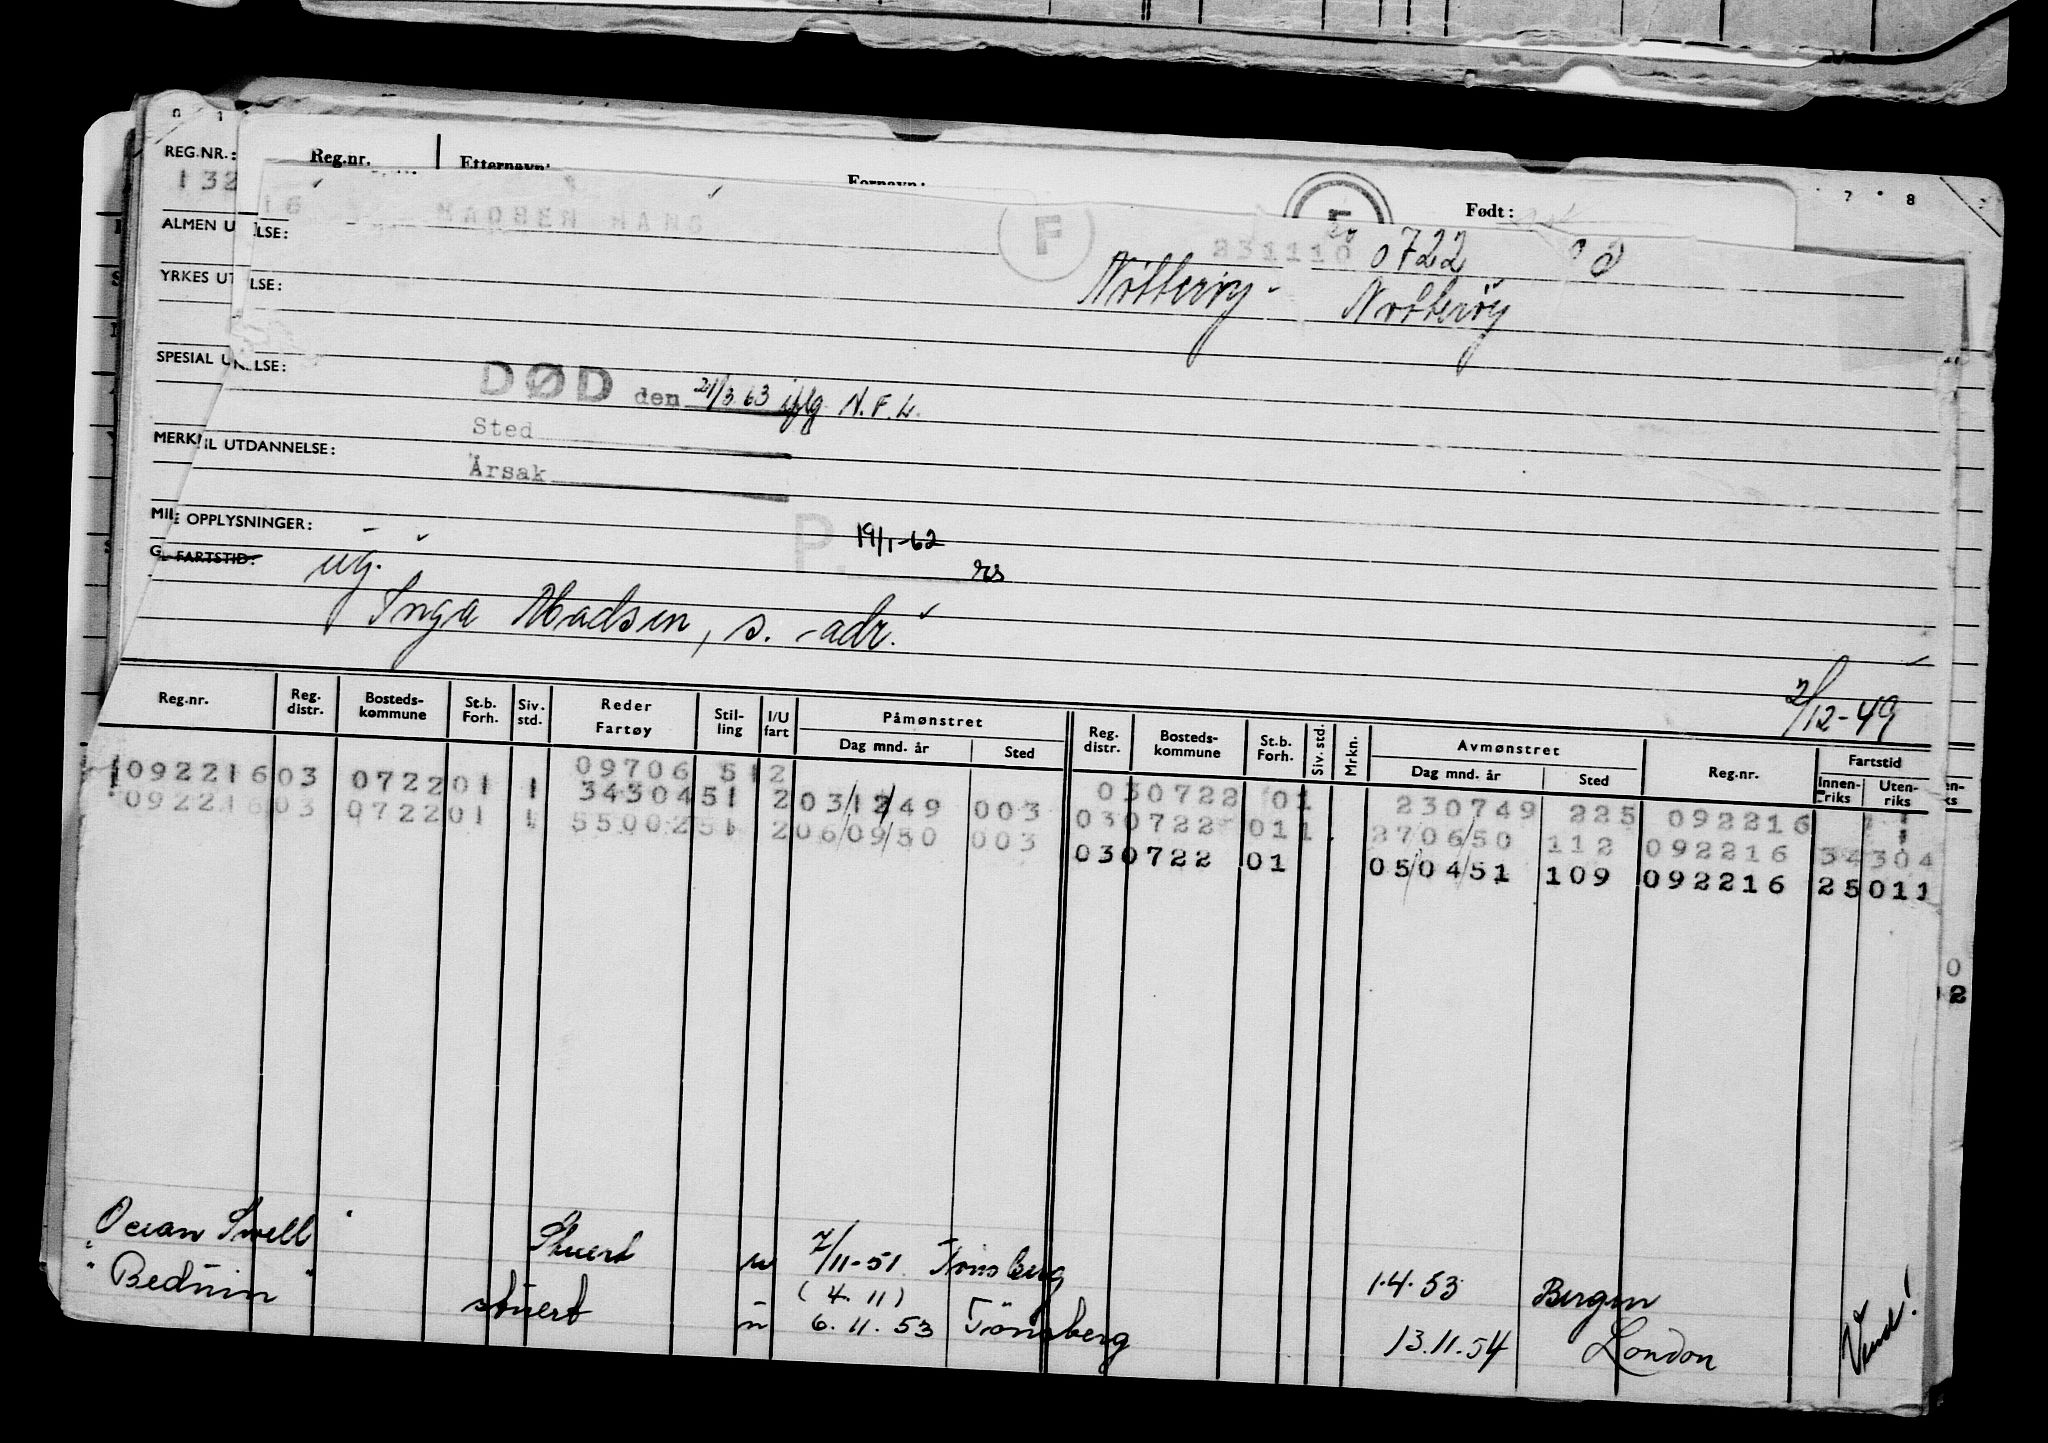 REG.NR.: Reg.nr. Etternavn: Fornavn: Født:
132
16 MADSEN HANS F 231110 0722
ALMEN U LSE:
Nøtterøy - Nøtterøy
YRKES UT LSE:
SPESIAL U LSE:
DØD den 21/3 63 iflg N.F.L.
Sted
MERK IL UTDANNELSE:
Årsak
MIL E OPPLYSNINGER:
P. 19/1-62
G FARTSTID: ug. rs
Inga Madsen, s. adr.
2/12-49
Reg.nr. Reg. distr. Bosteds- kommune St.b. Forh. Siv. std. Reder Fartøy Stil- ling I/U fart Påmønstret Dag mnd. år Sted Reg. distr. Bosteds- kommune St.b. Forh. Siv. std. Mrkn. Avmønstret Dag mnd. år Sted Reg.nr. Fartstid Innen- riks Uten- riks
09706 512 030722 01 230749 225 092216
1092216 03 0722 01 1 34304 51 2 03/12/49 003 030722 011 270650 112 092216 34304
092216 03 0722 01 1 55002 51 2 06/09/50 003 030722 01 05/04/51 109 092216 25011
0
02
"Ocean Swell" Stuert u 7/11-51 Tønsberg 1.4.53 Bergen
(4.11)
"Beduin" stuert u 6.11.53 Tønsberg 13.11.54 London
Vend!